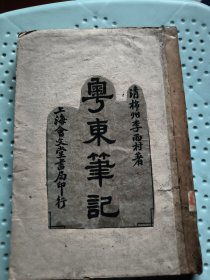 清棉州李雨村著
粵東筆記
上海會文堂書局印行